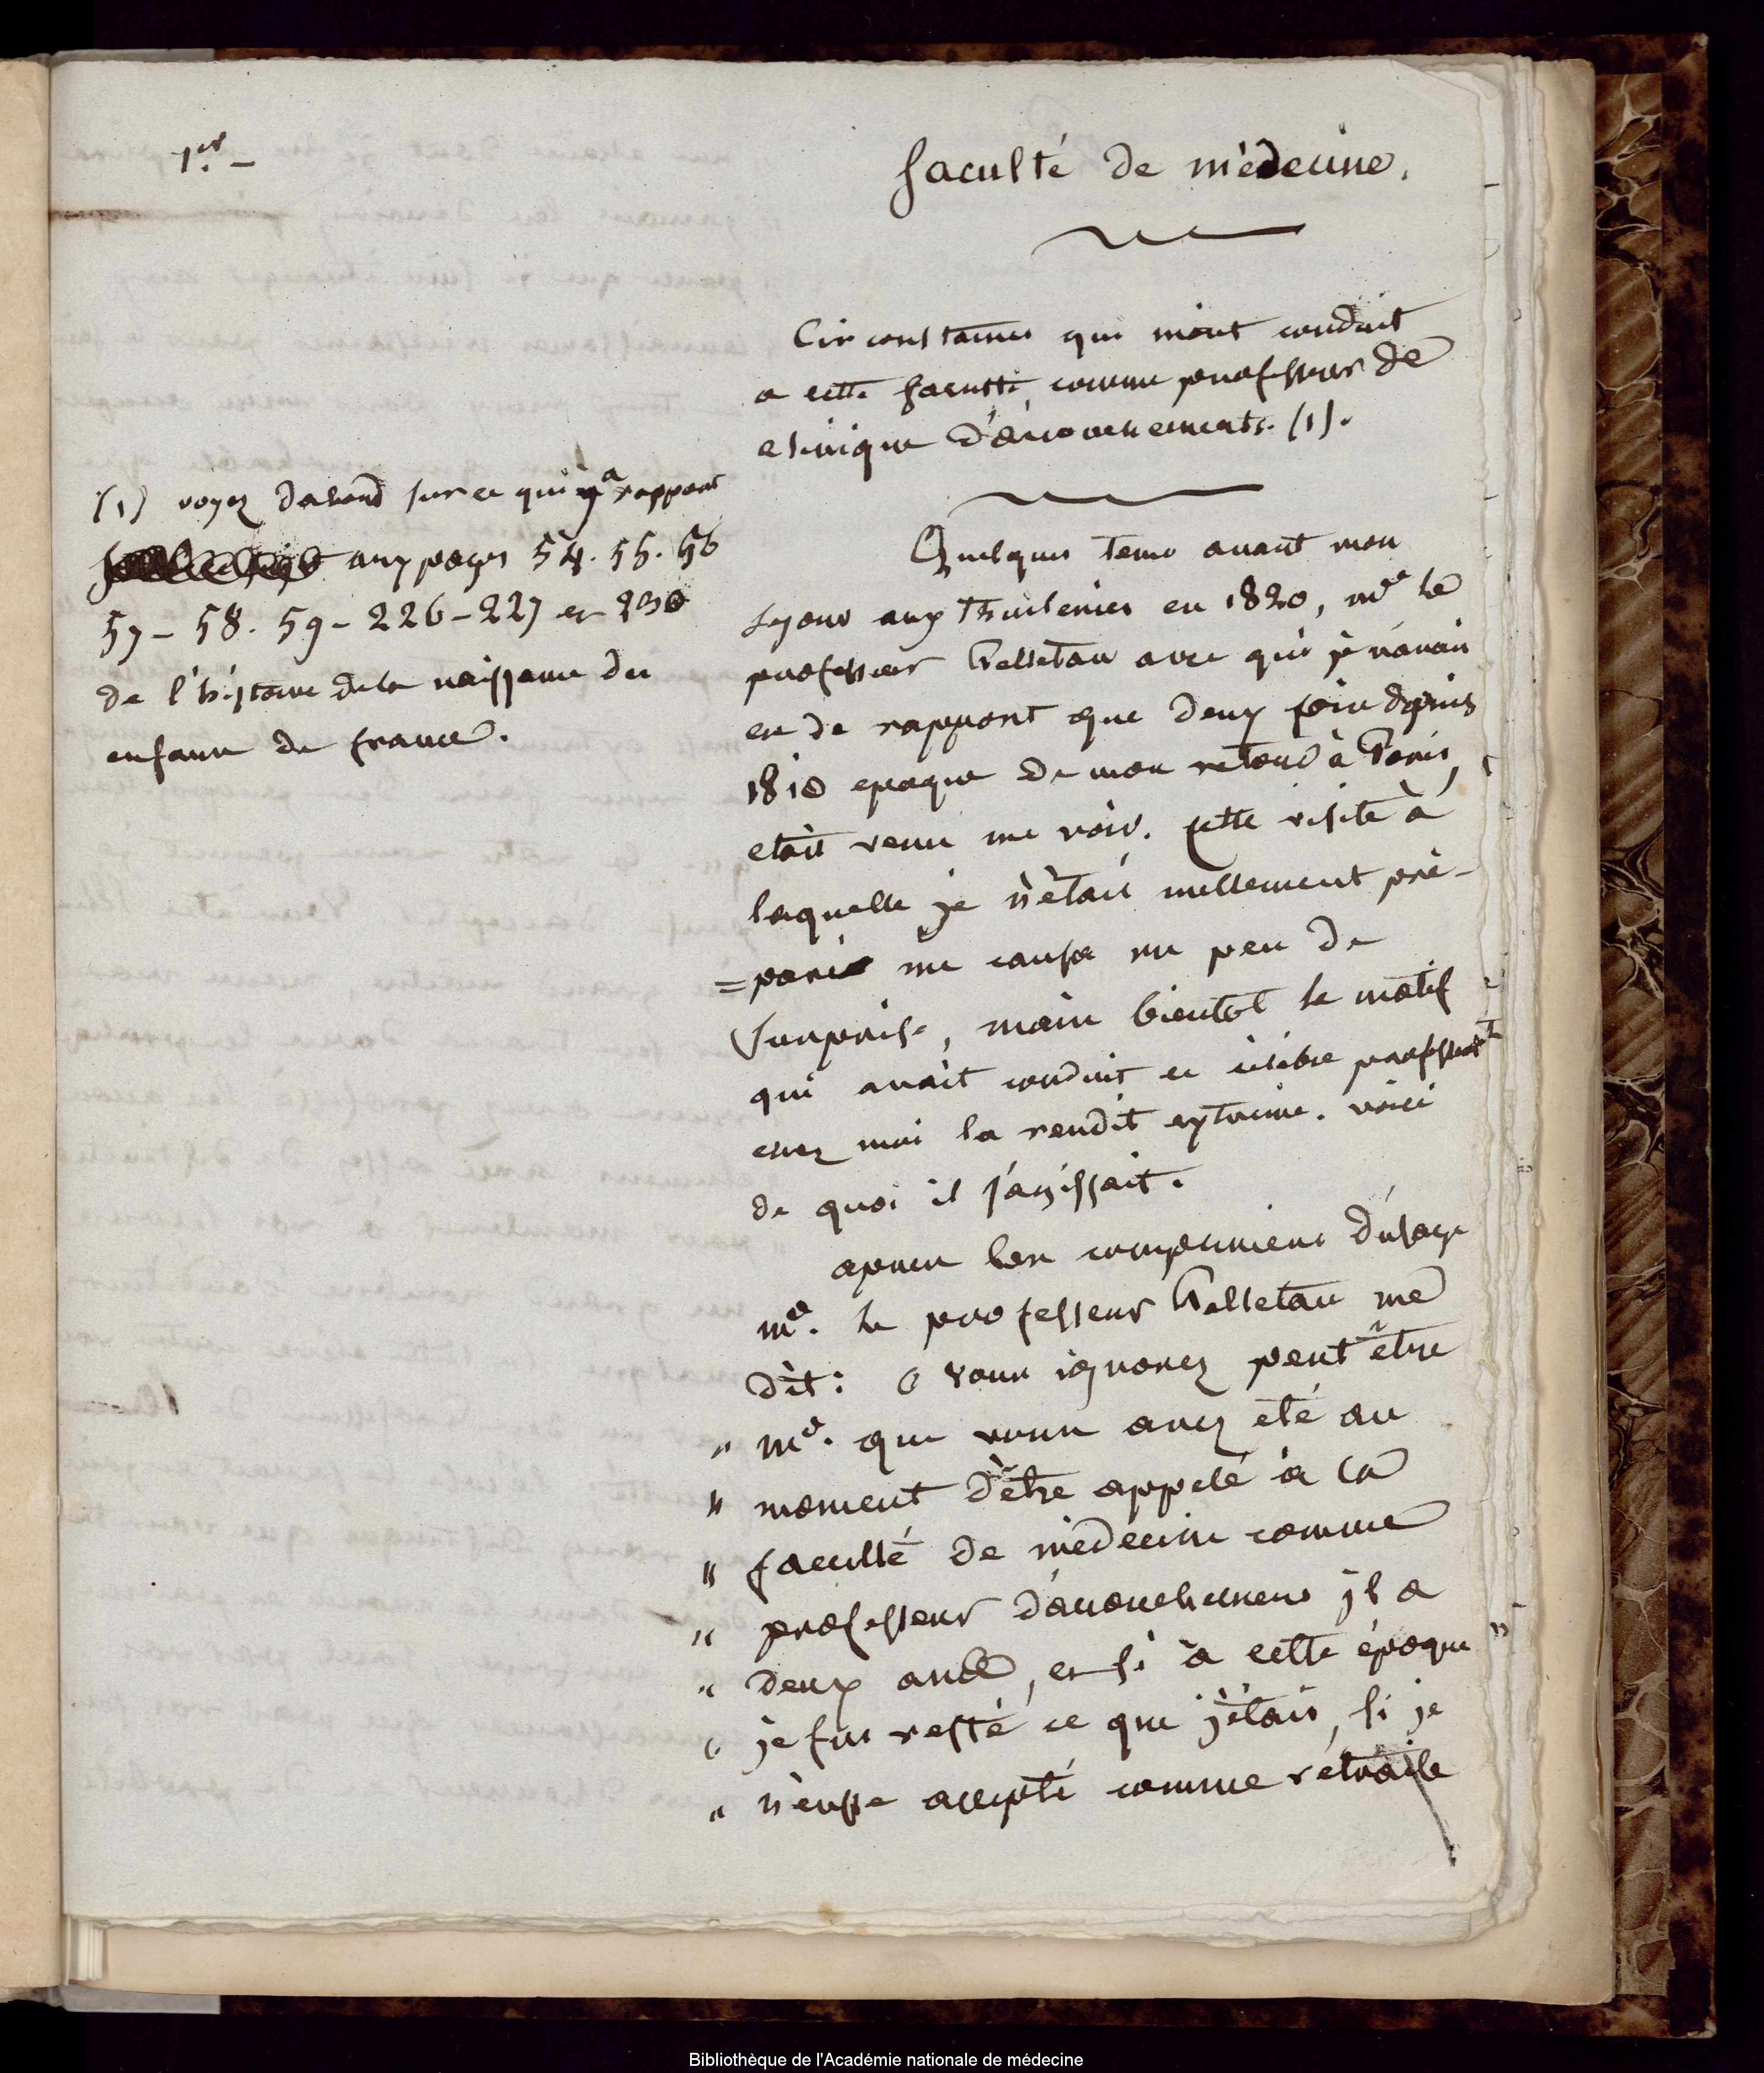 1er. –
faculté de médecine.
Circonstances qui m'ont conduit
a cette faculté, comme professeur de
clinique d'accouchements. (1).
(1) voyez dabord sur ce qui y a rapport
aux pages 54. 55. 56
57 – 58. 59 – 226 – 227 et 230
de l'histoire de la naissance des
enfans de france.
Quelques tems avant mon
séjour aux Thuileries en 1820, mr. le
professeur Pelletan avec qui je n'avais
eu de rapport que deux fois depuis
1810 epoque de mon retour à Paris,
etait venu me voir. cette visite à
laquelle je n'étais nullement pré-
=paré me causa un peu de
surprise, mais bientot le motif
qui avait conduit ce célèbre professeur
chez moi la rendit extreme. voici
de quoi il s'agissait.
apres les complimens d'usage
mr. le professeur Pelletan me
dit: « vous ignorez peut être
" mr. que vous avez été au
" moment d'être appelé à la
" faculté de médecine comme
" professeur d'accouchemens il a
" deux ans, et si à cette époque
" je fus resté ce que j'étais, si je
" n'eusse accepté comme retraite
Bibliothèque de l'Académie nationale de médecine